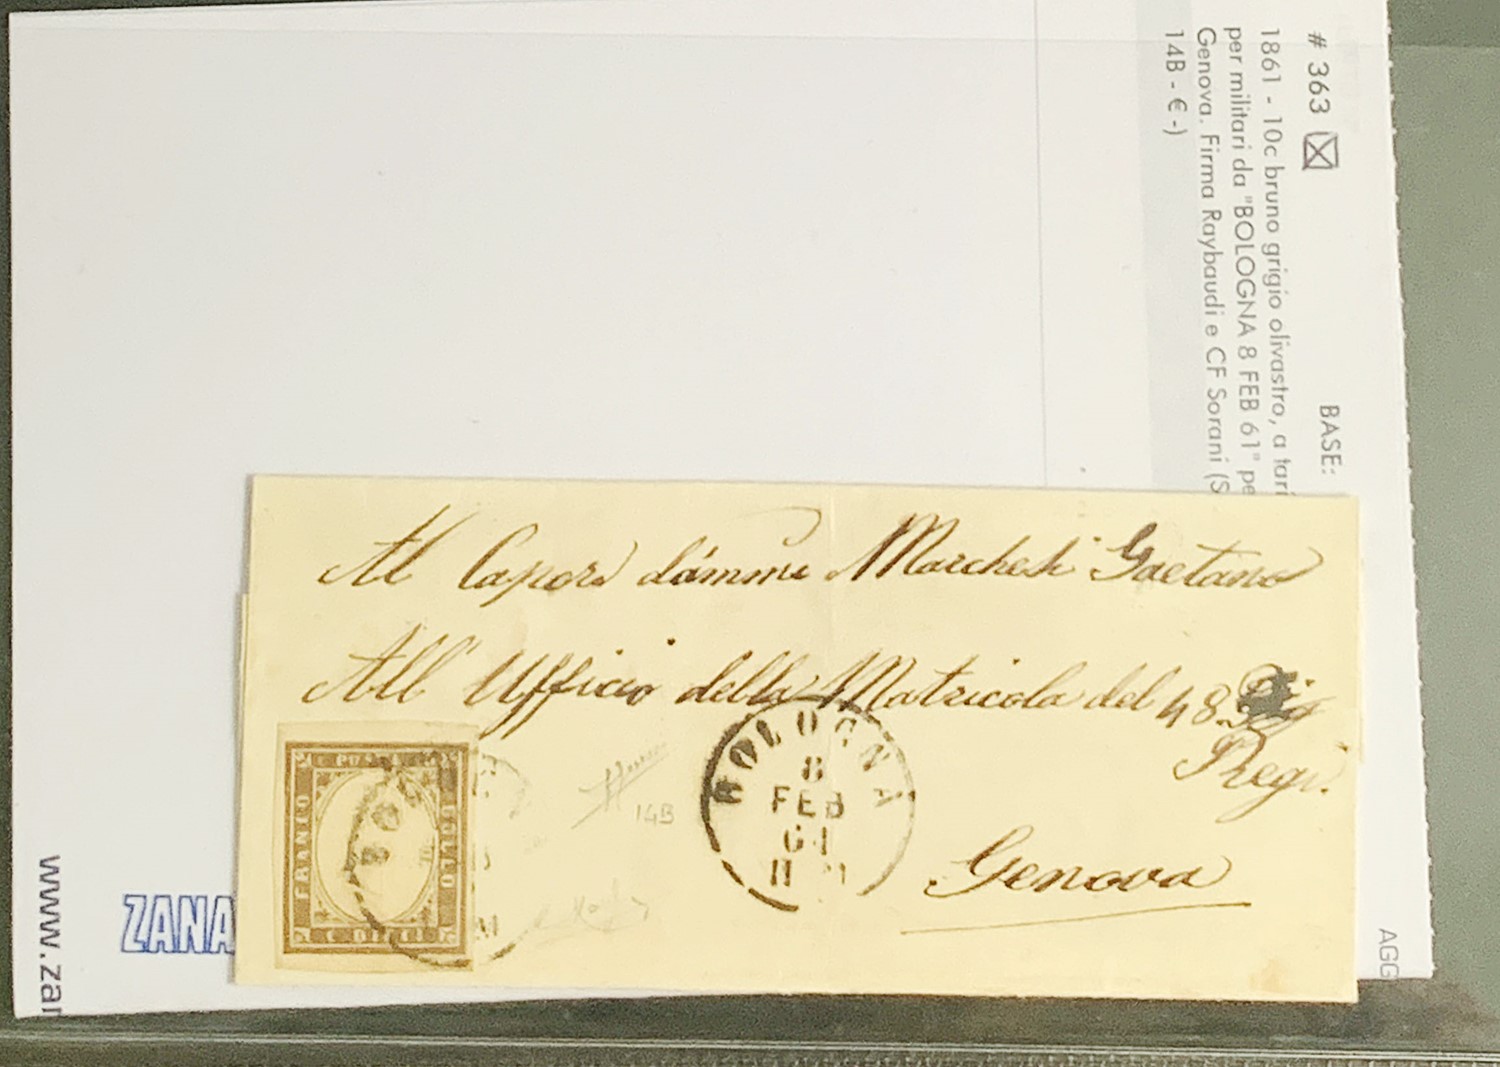 # 363 BASE:
1861 - 10c bruno grigio olivastro, a tari
per militari da "BOLOGNA 8 FEB 61" pe
Genova. Firma Raybaudi e CF Sorani (S
14B - € -)
AGG
www.zan
ZANA
Al Capora d'ammi Marchesi Gaetano
All' Ufficio della Matricola del 48
Regi.
Genova
BOLOGNA
8
FEB
61
11 M
14B
FRANCO
POSTA
BOLLO
C DIECI
BO